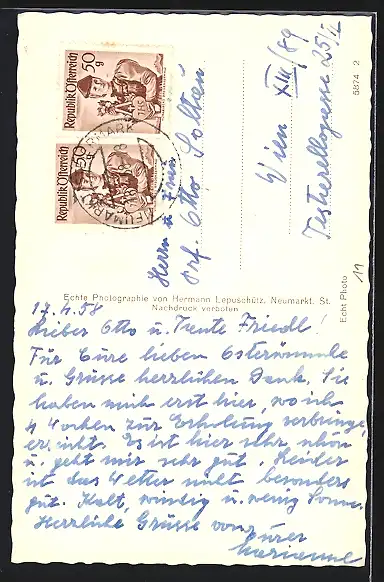 Republik Österreich
50 g
Republik Österreich
50 g
NEUMARKT
Herrn u. Frau
Prf. Otto Soltau
Wien XIII/89
25/II
5874 2
Echt Photo
11
Echte Photographie von Hermann Lepuschütz, Neumarkt. St.
Nachdruck verboten
17.4.58
Lieber Otto u. Tante Friedl!
Für Eure lieben Osterwünsche
u. Grüsse herzlichen Dank. Sie
haben mich erst hier, wo ich
4 Wochen zur Erholung verbringe,
erreicht. Es ist hier sehr schön
u. geht mir sehr gut. Leider
ist das Wetter nicht besonders
gut. Kalt, windig u. wenig Sonne.
Herzliche Grüsse von
Eurer
Marianne